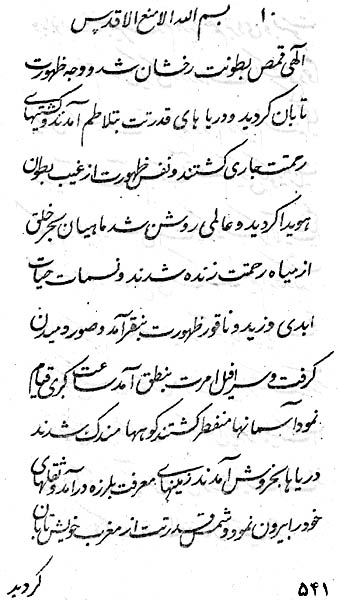 ۱۰ بسم الله الامنع الاقدس
الهی قمص بطونت رخشان شد و وجه ظهورت
تابان گردید و دریاهای قدرتت بتلاطم آمدند و کشتیهای
رحمتت جاری گشتند و نفس ظهورت از غیب بطون
هویدا گردید و عالمی روشن شد ماهیان بحر خلق
از میاه رحمتت زنده شدند و نسمات حیات
ابدی وزید و ناقور ظهورت بنقر آمد و صور دمیدن
گرفت و سرافیل امرت بنطق آمد ساعت کبری قیام
نمود آسمانها منفطر گشتند کوهها مندک شدند
دریاها بخروش آمدند زمینهای معرفت بلرزه درآمد و ثقلهای
خود را بیرون نمود و شمس قدرتت از مغرب خویش تابان
۵۴۱ گردید